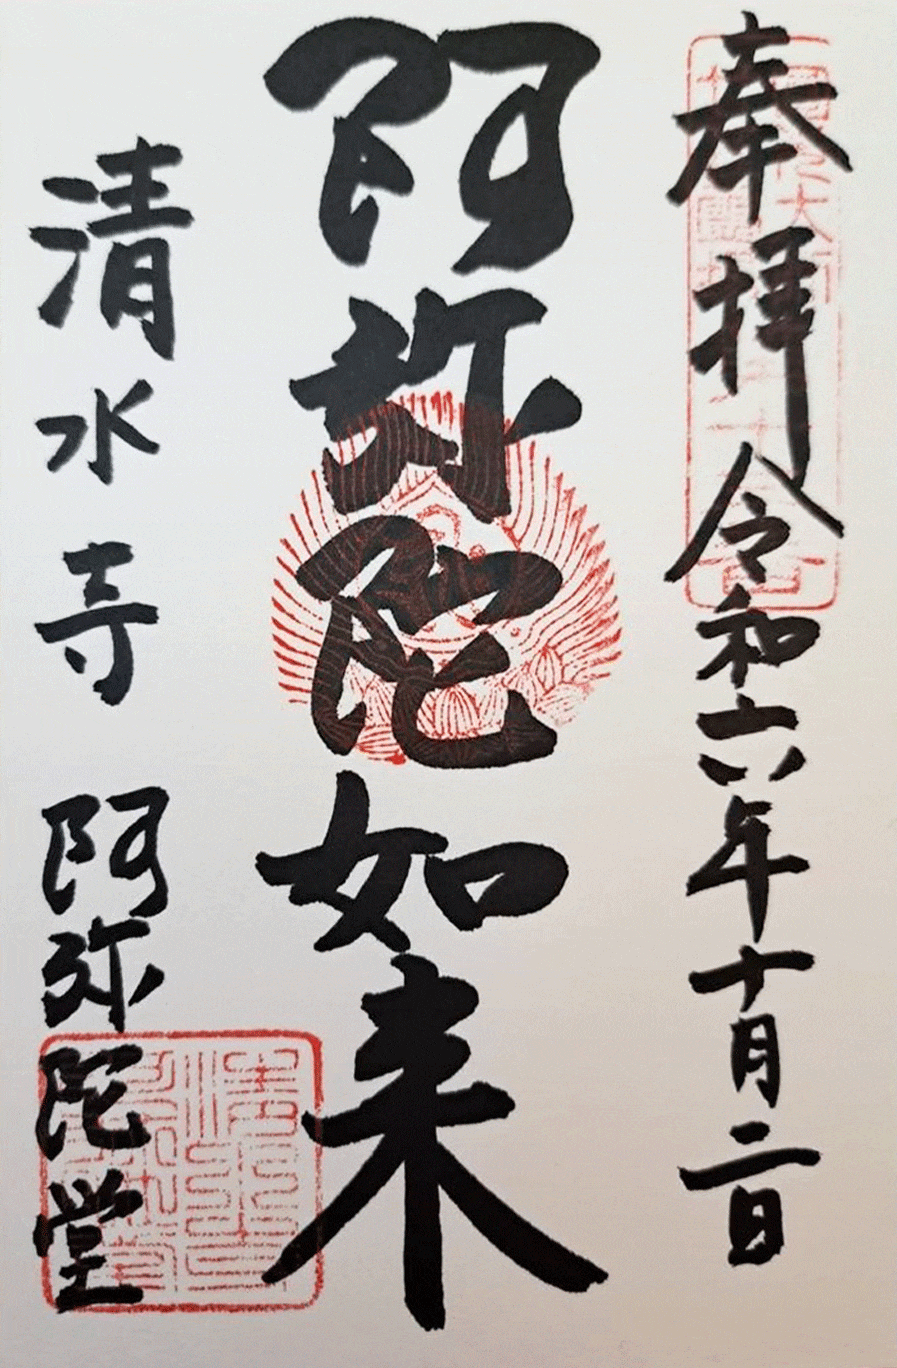 奉拝
令和六年十月二日
阿弥陀如来
清水寺 阿弥陀堂